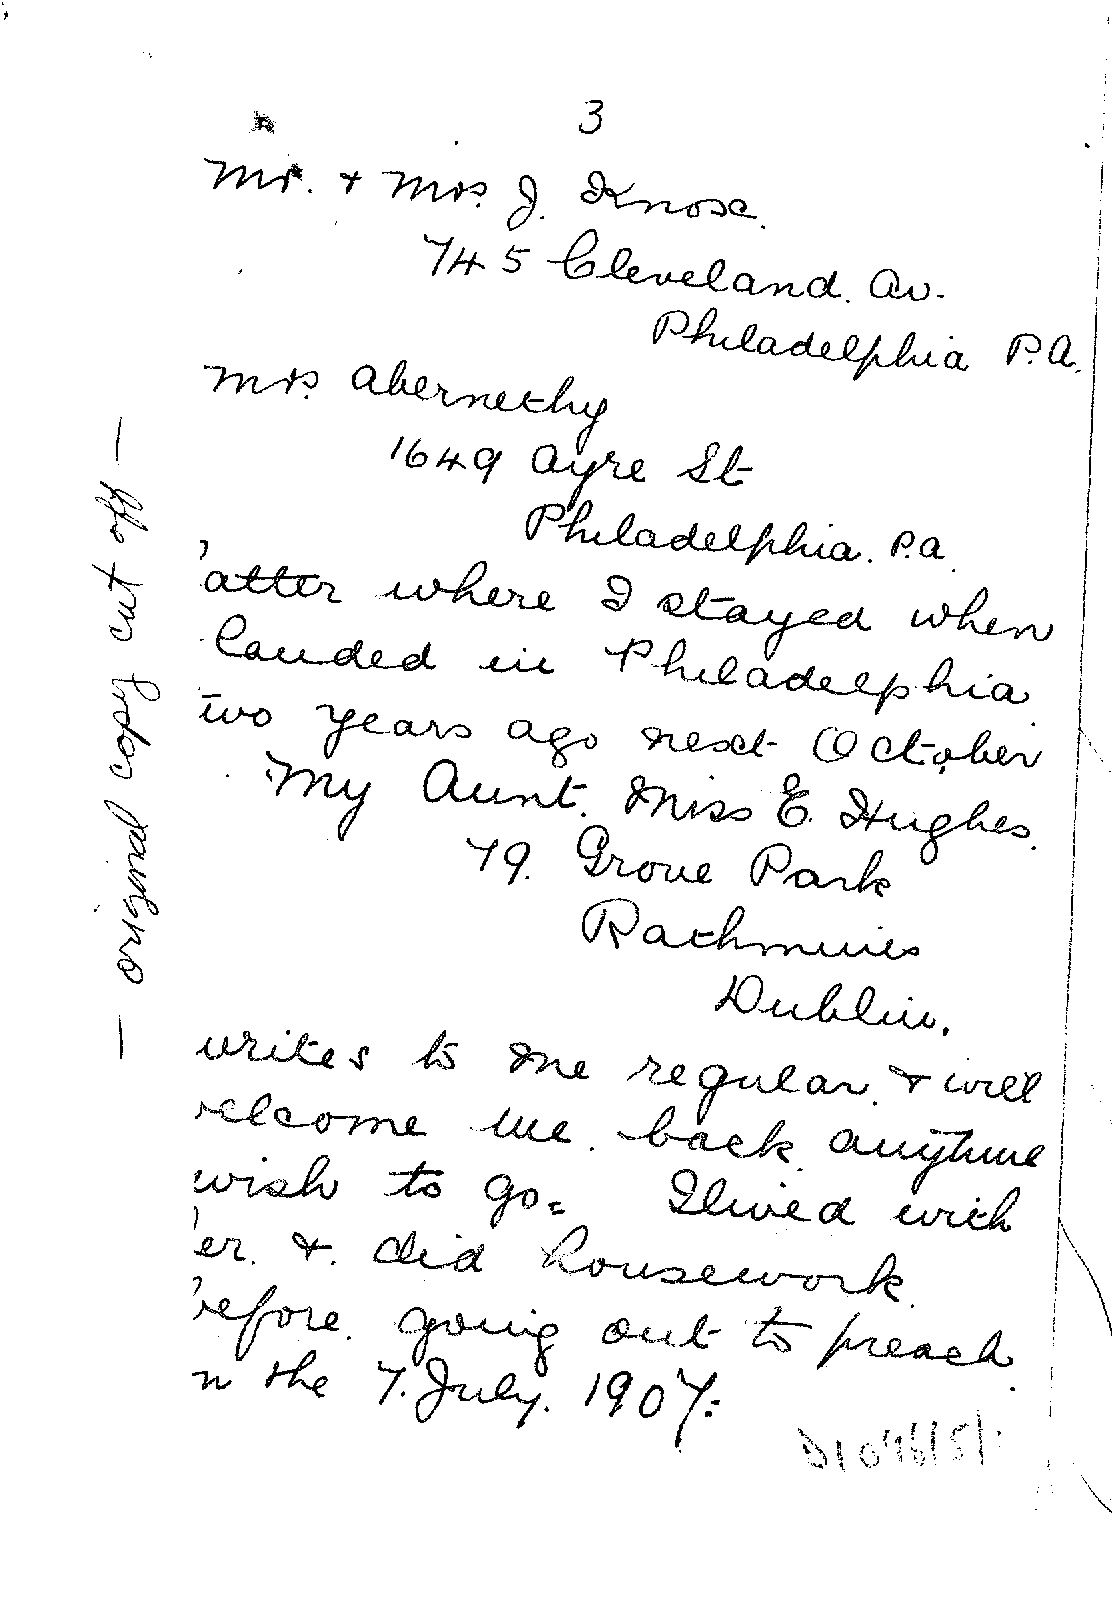 3
Mr. & Mrs. J. Knox.
745 Cleveland. Av.
Philadelphia P.A.
Mrs. Abernethy
1649 Ayre St
Philadelphia. P.a.
atter where I stayed when
landed in Philadelphia
two years ago next October
My Aunt. Miss E. Hughes.
79. Grove Park
Rathmines
Dublin.
writes to me regular. & will
welcome me. back anytime
wish to go. I lived with
er. & did housework.
before going out to preach
n the 7. July. 1907.
— original copy cut off —